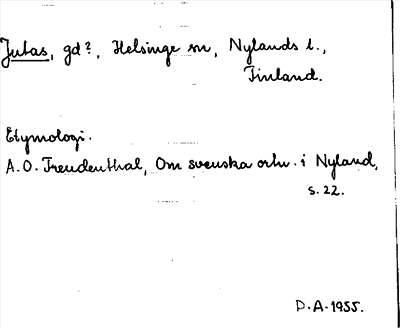 Jutas, gd?, Helsinge sn, Nylands l.,
Finland.
Etymologi.
A.O. Freudenthal, Om svenska ortn. i Nyland,
s. 22.
D.A. 1955.